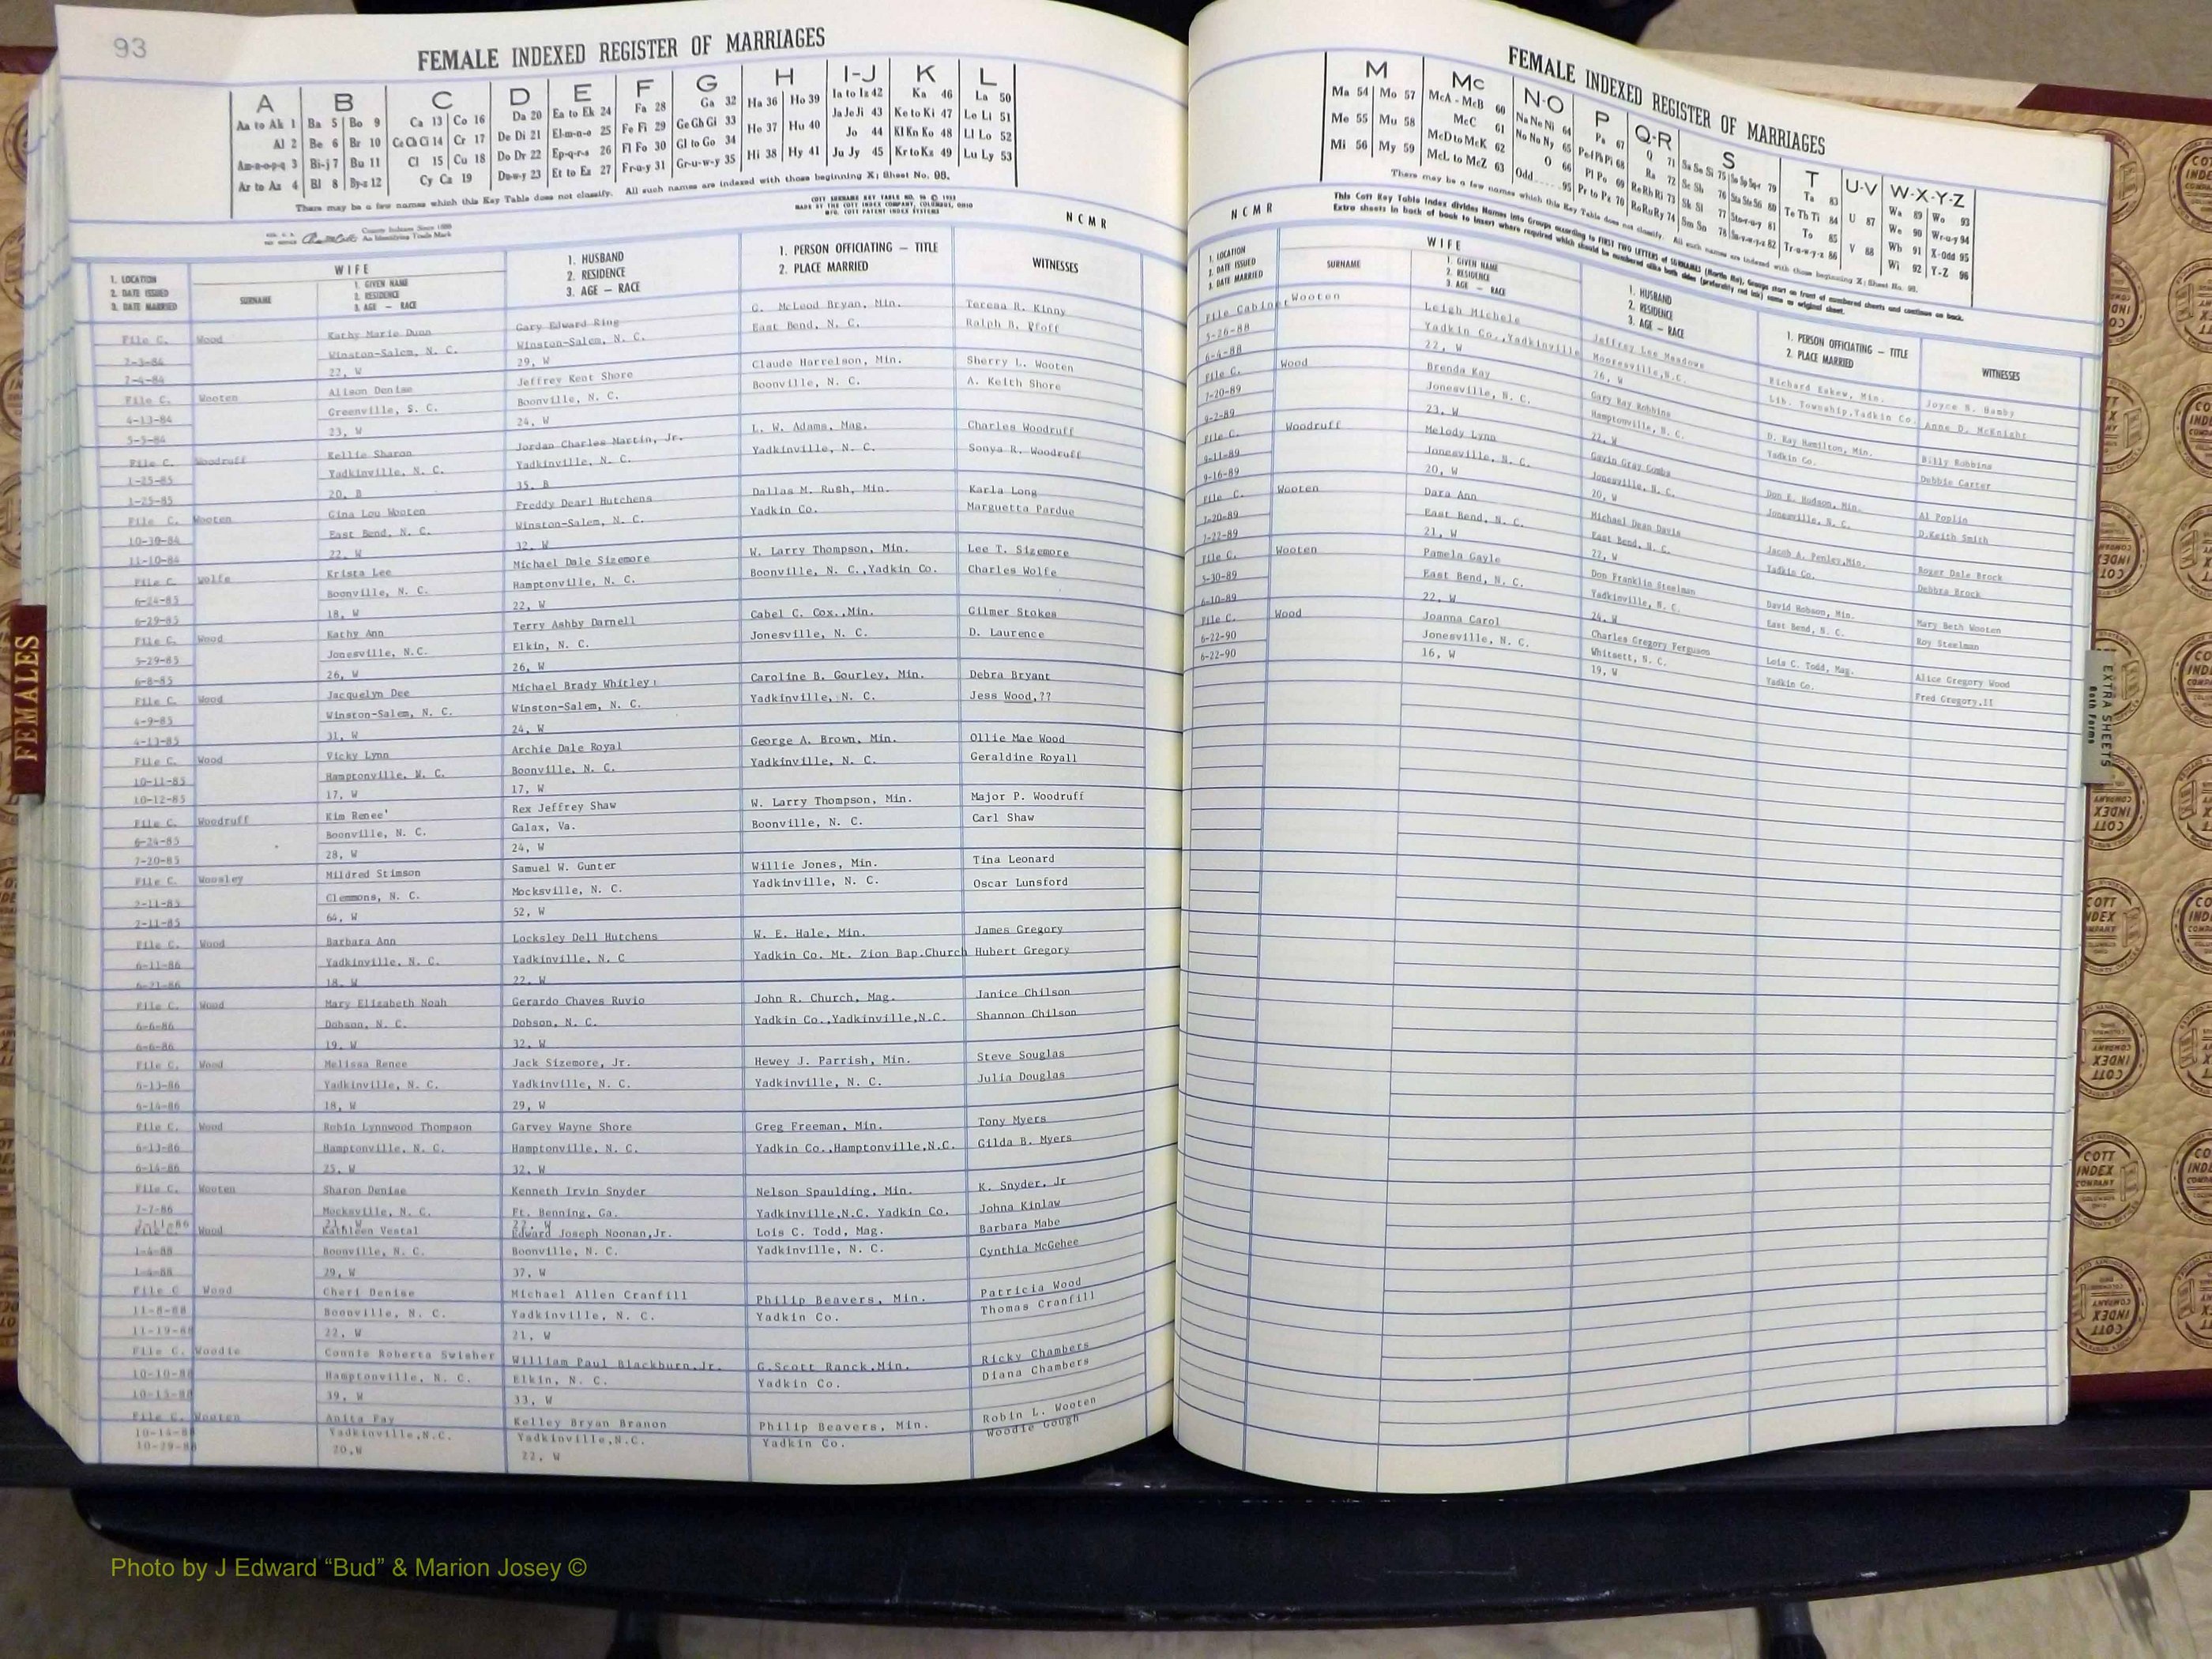 93
FEMALE INDEXED REGISTER OF MARRIAGES
A B C D E F G H I-J K L
Aa to Ak 1 Ba 5 Bo 9 Ca 13 Co 16 Da 20 Ea to Ek 24 Fa 28 Ga 32 Ha 36 Ho 39 Ia to Iz 42 Ka 46 La 50
Al 2 Be 6 Br 10 Ce Ch Ci 14 Cr 17 De Di 21 El-m-n-o 25 Fe Fi 29 Ge Gh Gi 33 He 37 Hu 40 Ja Je Ji 43 Ke to Ki 47 Le Li 51
Am-n-o-p-q 3 Bi-j 7 Bu 11 Cl 15 Cu 18 Do Dr 22 Ep-q-r-s 26 Fl Fo 30 Gl to Go 34 Hi 38 Hy 41 Jo 44 Kl Kn Ko 48 Ll Lo 52
Ar to Az 4 Bl 8 By-z 12 Cy Cz 19 Du-w-y 23 Et to Ez 27 Fr-u-y 31 Gr-u-w-y 35 Ju Jy 45 Kr to Kz 49 Lu Ly 53
There may be a few names which this Key Table does not classify. All such names are indexed with those beginning X; Sheet No. 98.
County Indexes Since 1888
An Identifying Trade Mark
MADE BY THE COTT INDEX COMPANY, COLUMBUS, OHIO
MFG. COTT PATENT INDEX SYSTEMS
N C M R
1. LOCATION
2. DATE ISSUED
3. DATE MARRIED
WIFE
SURNAME
1. GIVEN NAME
2. RESIDENCE
3. AGE — RACE
1. HUSBAND
2. RESIDENCE
3. AGE — RACE
1. PERSON OFFICIATING — TITLE
2. PLACE MARRIED
WITNESSES
File C. Wood Kathy Marie Dunn Gary Edward Ring G. McLeod Bryan, Min. Teresa R. Kinny
2-3-84 Winston-Salem, N. C. Winston-Salem, N. C. East Bend, N. C. Ralph B. Pfoff
2-4-84 22, W 29, W
File C. Wooten Alison Denise Jeffrey Kent Shore Claude Harrelson, Min. Sherry L. Wooten
4-13-84 Greenville, S. C. Boonville, N. C. Boonville, N. C. A. Keith Shore
5-5-84 23, W 24, W
File C. Woodruff Kellie Sharon Jordan Charles Martin, Jr. L. W. Adams, Mag. Charles Woodruff
1-25-85 Yadkinville, N. C. Yadkinville, N. C. Yadkinville, N. C. Sonya R. Woodruff
1-25-85 20, B 35, B
File C. Wooten Gina Lou Wooten Freddy Dearl Hutchens Dallas M. Rush, Min. Karla Long
10-30-84 East Bend, N. C. Winston-Salem, N. C. Yadkin Co. Marguetta Pardue
11-10-84 22, W 32, W
File C. Wolfe Krista Lee Michael Dale Sizemore W. Larry Thompson, Min. Lee T. Sizemore
6-24-85 Boonville, N. C. Hamptonville, N. C. Boonville, N. C.,Yadkin Co. Charles Wolfe
6-29-85 18, W 22, W
File C. Wood Kathy Ann Terry Ashby Darnell Cabel C. Cox.,Min. Gilmer Stokes
5-29-85 Jonesville, N.C. Elkin, N. C. Jonesville, N. C. D. Laurence
6-8-85 26, W 26, W
File C. Wood Jacquelyn Dee Michael Brady Whitley Caroline B. Gourley, Min. Debra Bryant
4-9-85 Winston-Salem, N. C. Winston-Salem, N. C. Yadkinville, N. C. Jess Wood,??
4-13-85 31, W 24, W
File C. Wood Vicky Lynn Archie Dale Royal George A. Brown, Min. Ollie Mae Wood
10-11-85 Hamptonville, N. C. Boonville, N. C. Yadkinville, N. C. Geraldine Royall
10-12-85 17, W 17, W
File C. Woodruff Kim Renee' Rex Jeffrey Shaw W. Larry Thompson, Min. Major P. Woodruff
6-24-85 Boonville, N. C. Galax, Va. Boonville, N. C. Carl Shaw
7-20-85 28, W 24, W
File C. Woosley Mildred Stimson Samuel W. Gunter Willie Jones, Min. Tina Leonard
2-11-85 Clemmons, N. C. Mocksville, N. C. Yadkinville, N. C. Oscar Lunsford
2-11-85 64, W 52, W
File C. Wood Barbara Ann Locksley Dell Hutchens W. E. Hale, Min. James Gregory
6-11-86 Yadkinville, N. C. Yadkinville, N. C Yadkin Co. Mt. Zion Bap.Church Hubert Gregory
6-21-86 18, W 22, W
File C. Wood Mary Elizabeth Noah Gerardo Chaves Ruvio John R. Church, Mag. Janice Chilson
6-6-86 Dobson, N. C. Dobson, N. C. Yadkin Co.,Yadkinville,N.C. Shannon Chilson
6-6-86 19, W 32, W
File C. Wood Melissa Renee Jack Sizemore, Jr. Hewey J. Parrish, Min. Steve Souglas
6-13-86 Yadkinville, N. C. Yadkinville, N. C. Yadkinville, N. C. Julia Douglas
6-14-86 18, W 29, W
File C. Wood Robin Lynnwood Thompson Garvey Wayne Shore Greg Freeman, Min. Tony Myers
6-13-86 Hamptonville, N. C. Hamptonville, N. C. Yadkin Co.,Hamptonville,N.C. Gilda B. Myers
6-14-86 25, W 32, W
File C. Wooten Sharon Denise Kenneth Irvin Snyder Nelson Spaulding, Min. K. Snyder, Jr
7-7-86 Mocksville, N. C. Ft. Benning, Ga. Yadkinville,N.C. Yadkin Co. Johna Kinlaw
21, W 22, W
File C. Wood Kathleen Vestal Edward Joseph Noonan,Jr. Lois C. Todd, Mag. Barbara Mabe
1-4-88 Boonville, N. C. Boonville, N. C. Yadkinville, N. C. Cynthia McGehee
1-4-88 29, W 37, W
File C Wood Cheri Denise Michael Allen Cranfill Philip Beavers, Min. Patricia Wood
11-8-88 Boonville, N. C. Yadkinville, N. C. Yadkin Co. Thomas Cranfill
11-19-88 22, W 21, W
File C. Woodie Connie Roberta Swisher William Paul Blackburn,Jr. G.Scott Ranck,Min. Ricky Chambers
10-10-88 Hamptonville, N. C. Elkin, N. C. Yadkin Co. Diana Chambers
10-15-88 39, W 33, W
File C. Wooten Anita Fay Kelley Bryan Branon Philip Beavers, Min. Robin L. Wooten
10-14-88 Yadkinville,N.C. Yadkinville,N.C. Yadkin Co. Woodie Gough
10-29-88 20,W 22, W
FEMALES
FEMALE INDEXED REGISTER OF MARRIAGES
M Mc N-O P Q-R S T U-V W-X-Y-Z
Ma 54 Mo 57 McA - McB 60 Na Ne Ni 64 Pa 67 Q 71 Sa Se Si 75 Sn Sp Sq-r 79 Ta 83 U 87 Wa 89 Wo 93
Me 55 Mu 58 McC 61 No Nu Ny 65 Pe-f Ph Pi 68 Ra 72 Sc Sh 76 Sta Ste Sti 80 Te Th Ti 84 V 88 We 90 Wr-u-y 94
Mi 56 My 59 McD to McK 62 O 66 Pl Po 69 Re Rh Ri 73 Sk Sl 77 Sto-r-u-y 81 To 85 Wh 91 X-Odd 95
McL to McZ 63 Odd 95 Pr to Pz 70 Ro Ru Ry 74 Sm So 78 Su-v-w-y-z 82 Tr-u-w-y-z 86 Wi 92 Y-Z 96
There may be a few names which this Key Table does not classify. All such names are indexed with those beginning X; Sheet No. 98.
This Cott Key Table Index divides Names into Groups according to FIRST TWO LETTERS of SURNAMES (Martin Ma). Groups start on front of numbered sheets and continue on back.
Extra sheets in back of book to insert where required which should be numbered alike both sides (preferably red ink) same as original sheet.
N C M R
1. LOCATION
2. DATE ISSUED
3. DATE MARRIED
WIFE
SURNAME
1. GIVEN NAME
2. RESIDENCE
3. AGE — RACE
1. HUSBAND
2. RESIDENCE
3. AGE — RACE
1. PERSON OFFICIATING — TITLE
2. PLACE MARRIED
WITNESSES
File Cabinet Wooten Leigh Michele Jeffrey Lee Meadows Richard Eskew, Min. Joyce B. Hamby
5-26-88 Yadkin Co.,Yadkinville Mooresville,N.C. Lib. Township,Yadkin Co. Anne D. McKnight
6-4-88 22, W 26, W
File C. Wood Brenda Kay Gary Ray Robbins D. Ray Hamilton, Min. Billy Robbins
7-20-89 Jonesville, N. C. Hamptonville, N. C. Yadkin Co. Debbie Carter
9-2-89 23, W 22, W
File C. Woodruff Melody Lynn Gavin Gray Combs Don E. Hudson, Min. Al Poplin
9-11-89 Jonesville, N. C. Jonesville, N. C. Jonesville, N. C. D.Keith Smith
9-16-89 20, W 20, W
File C. Wooten Dara Ann Michael Dean Davis Jacob A. Penley,Min. Roger Dale Brock
1-20-89 East Bend, N. C. East Bend, N. C. Yadkin Co. Debbra Brock
1-22-89 21, W 22, W
File C. Wooten Pamela Gayle Don Franklin Steelman David Hobson, Min. Mary Beth Wooten
5-30-89 East Bend, N. C. Yadkinville, N. C. East Bend, N. C. Roy Steelman
6-10-89 22, W 24, W
File C. Wood Joanna Carol Charles Gregory Ferguson Lois C. Todd, Mag. Alice Gregory Wood
6-22-90 Jonesville, N. C. Whitsett, N. C. Yadkin Co. Fred Gregory,II
6-22-90 16, W 19, W
EXTRA SHEETS
Both Forms
COTT INDEX COMPANY
Photo by J Edward “Bud” & Marion Josey ©